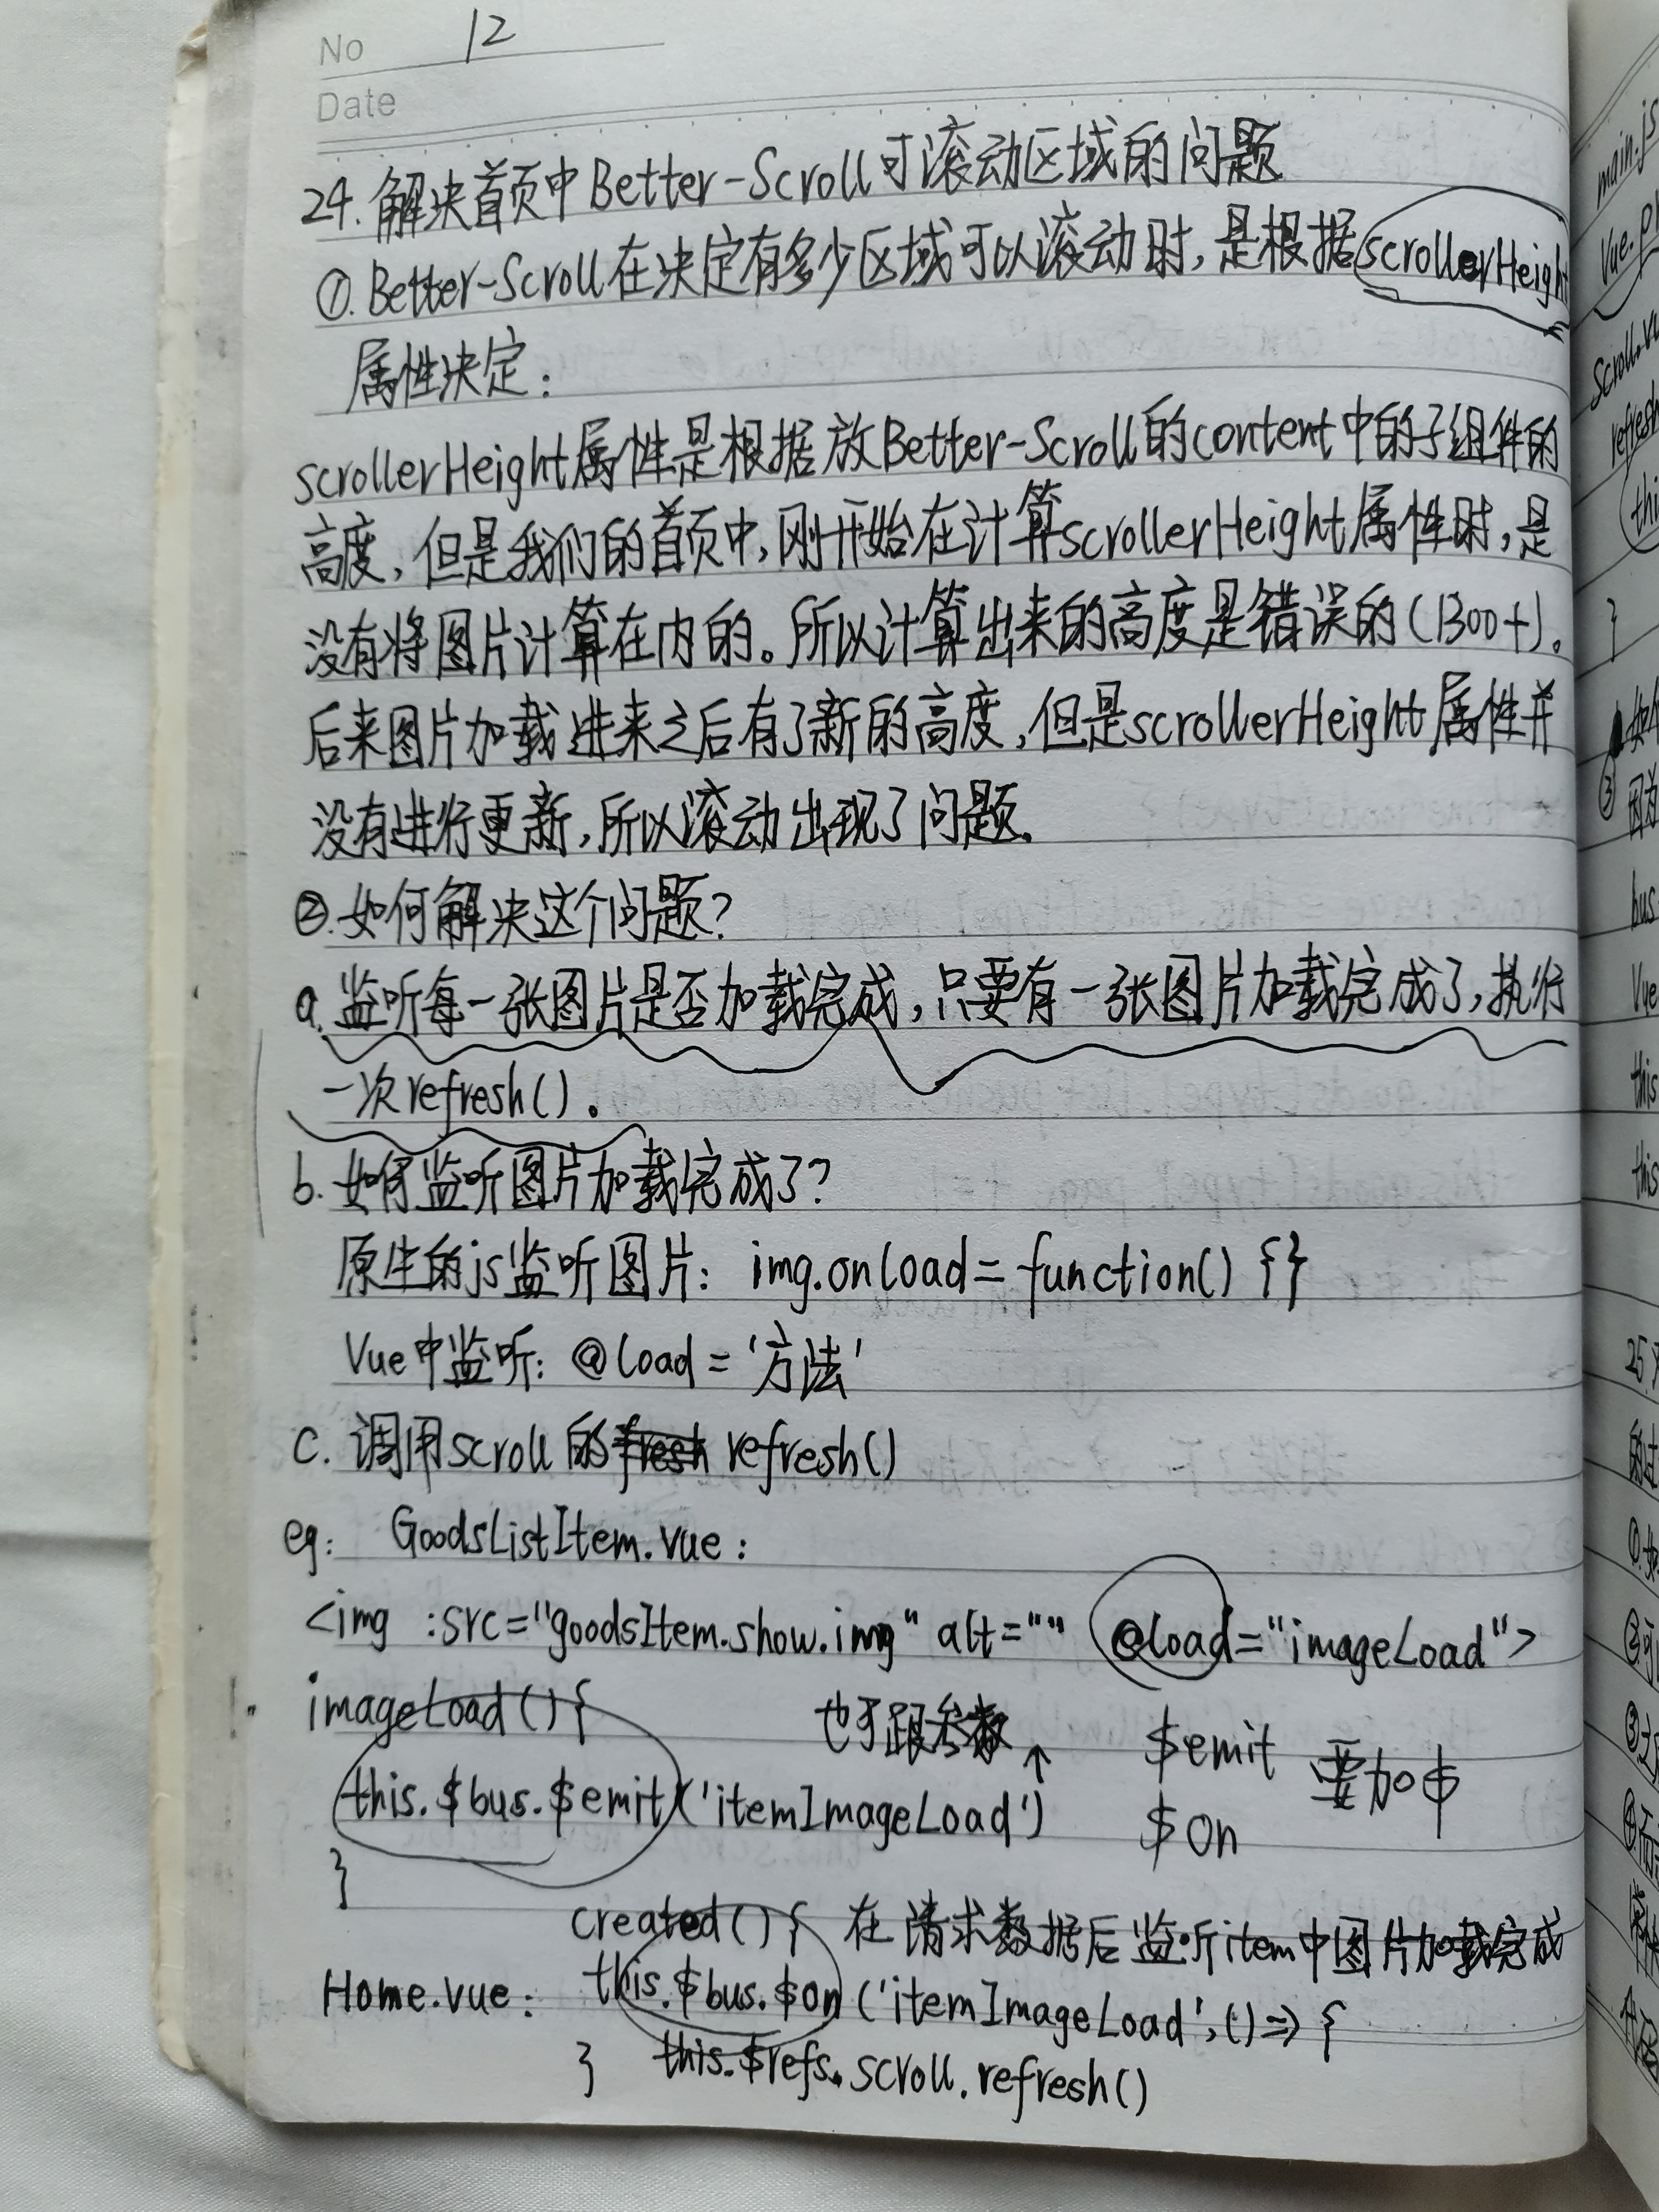 No 12
Date
24. 解决首页中Better-Scroll可滚动区域的问题
①. Better-Scroll在决定有多少区域可以滚动时,是根据scrollerHeight
属性决定:
scrollerHeight属性是根据放Better-Scroll的content中的子组件的
高度,但是我们的首页中,刚开始在计算scrollerHeight属性时,是
没有将图片计算在内的。所以计算出来的高度是错误的(1300+)。
后来图片加载进来之后有了新的高度,但是scrollerHeight属性并
没有进行更新,所以滚动出现了问题.
②.如何解决这个问题?
a.监听每一张图片是否加载完成,只要有一张图片加载完成了,执行
一次refresh()。
b.如何监听图片加载完成了?
原生的js监听图片: img.onload=function() {}
Vue中监听: @load='方法'
c. 调用scroll的refresh()
eg: GoodsListItem.vue:
<img :src="goodsItem.show.img" alt="" @load="imageLoad">
imageLoad(){
也可跟参数↑ $emit 要加$
this.$bus.$emit('itemImageLoad')
$on
}
created(){ 在请求数据后监听item中图片加载完成
Home.vue: this.$bus.$on('itemImageLoad',()=>{
} this.$refs.scroll.refresh()
main.js
Vue.p
Scroll.vu
refresh
thi
}
③因为
bus
Vue
this
this
25.